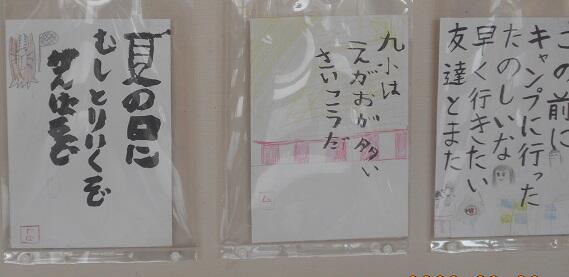 夏の日に
むしとりいくぞ
がんばるぞ
九小は
えがおが多い
さいっこうだ
この前に
キャンプに行った
たのしいな
早く行きたい
友達とまた